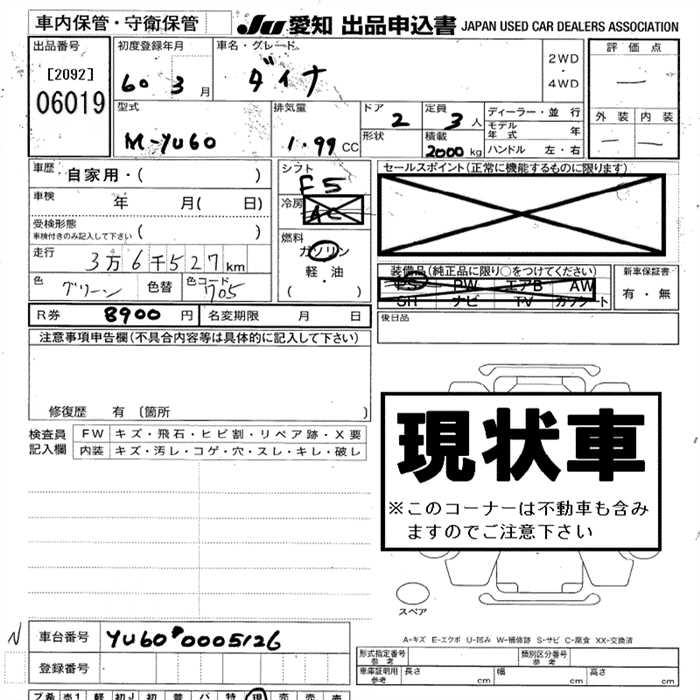 車内保管・守衛保管 JU 愛知 出品申込書 JAPAN USED CAR DEALERS ASSOCIATION
出品番号 初度登録年月 車名・グレード 評価点
[2092] 60 3月 ダイナ 2WD・4WD —
06019
型式 排気量 ドア 2 定員 3人 ディーラー・並行 外装 内装
M-YU60 1.99CC 形状 積載 2000kg モデル年式 年 — —
ハンドル 左・右
車歴 自家用・( ) シフト F5 セールスポイント(正常に機能するものに限ります)
車検 年 月( 日) 冷房 AC
受検形態 ( )
車検付きのみ記入して下さい
燃料 ガソリン
軽・油
( )
走行 3万6千527km
装備品(純正品に限り○をつけてください) 新車保証書
PS PW エアB AW 有・無
SH ナビ TV カセット
色 グリーン 色替 色コード 705
R券 8900円 名変期限 月 日 後日品
注意事項申告欄(不具合内容等は具体的に記入して下さい)
修復歴 有 〔箇所 〕
現状車
※このコーナーは不動車も含み
ますのでご注意下さい
検査員 FW キズ・飛石・ヒビ割・リペア跡・X要
記入欄 内装 キズ・汚レ・コゲ・穴・スレ・キレ・破レ
スペア
N 車台番号 YU60*0005126
A-キズ E-エクボ U-凹み W-補修跡 S-サビ C-腐食 XX-交換済
登録番号
形式指定番号 参考 類別区分番号 参考
車庫証明用 参考 長さ cm 幅 cm 高さ cm